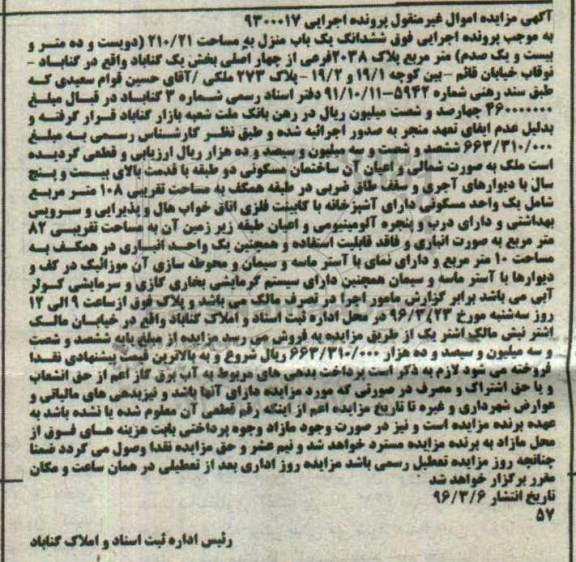 آگهی مزایده اموال غیرمنقول پرونده اجرایی ۹۳۰۰۰۱۷
به موجب پرونده اجرایی فوق ششدانگ یک باب منزل به مساحت ۲۱۰/۲۱ (دویست و ده متر و
بیست و یک صدم) متر مربع پلاک ۲۰۳۸فرعی از چهار اصلی بخش یک گناباد واقع در گناباد -
نوقاب خیابان قائم - بین کوچه ۱۹/۱ و ۱۹/۲ - پلاک ۲۷۳ ملکی /آقای حسین قوام سعیدی که
طبق سند رهنی شماره ۵۹۴۲-۹۱/۱۰/۱۱ دفتر اسناد رسمی شماره ۳ گناباد در قبال مبلغ
۴۶۰۰۰۰۰۰۰ چهارصد و شصت میلیون ریال در رهن بانک ملت شعبه بازار گناباد قرار گرفته و
بدلیل عدم ایفای تعهد منجر به صدور اجرائیه شده و طبق نظر کارشناس رسمی به مبلغ
۶۶۳/۳۱۰/۰۰۰ ششصد و شصت و سه میلیون و سیصد و ده هزار ریال ارزیابی و قطعی گردیده
است ملک به صورت شمالی و اعیان آن ساختمان مسکونی دو طبقه با قدمت بالای بیست و پنج
سال با دیوارهای آجری و سقف طاق ضربی در طبقه همکف به مساحت تقریبی ۱۰۸ متر مربع
شامل یک واحد مسکونی دارای آشپزخانه با کابینت فلزی اتاق خواب هال و پذیرایی و سرویس
بهداشتی و دارای درب و پنجره آلومینیومی و اعیان طبقه زیر زمین آن به مساحت تقریبی ۸۲
متر مربع به صورت انباری و فاقد قابلیت استفاده و همچنین یک واحد انباری در همکف به
مساحت ۱۰ متر مربع و دارای نمای با آستر ماسه و سیمان و محوطه سازی آن موزائیک در کف و
دیوارها با آستر ماسه و سیمان همچنین دارای سیستم گرمایشی بخاری گازی و سرمایشی کولر
آبی می باشد برابر گزارش مامور اجرا در تصرف مالک می باشد و پلاک فوق ازساعت ۹ الی ۱۲
روز سه‌شنبه مورخ ۹۶/۳/۲۳ در محل اداره ثبت اسناد و املاک گناباد واقع در خیابان مالک
اشتر نبش مالک اشتر یک از طریق مزایده به فروش می رسد مزایده از مبلغ پایه ششصد و شصت
و سه میلیون و سیصد و ده هزار ۶۶۳/۳۱۰/۰۰۰ ریال شروع و به بالاترین قیمت پیشنهادی نقدا
فروخته می شود لازم به ذکر است پرداخت بدهی های مربوط به آب برق گاز اعم از حق انشعاب
و یا حق اشتراک و مصرف در صورتی که مورد مزایده دارای آنها باشد و نیزبدهی های مالیاتی و
عوارض شهرداری و غیره تا تاریخ مزایده اعم از اینکه رقم قطعی آن معلوم شده یا نشده باشد به
عهده برنده مزایده است و نیز در صورت وجود مازاد وجوه پرداختی بابت هزینه های فوق از
محل مازاد به برنده مزایده مسترد خواهد شد و نیم عشر و حق مزایده نقدا وصول می گردد ضمنا
چنانچه روز مزایده تعطیل رسمی باشد مزایده روز اداری بعد از تعطیلی در همان ساعت و مکان
مقرر برگزار خواهد شد
تاریخ انتشار ۹۶/۳/۶
۵۷
رئیس اداره ثبت اسناد و املاک گناباد